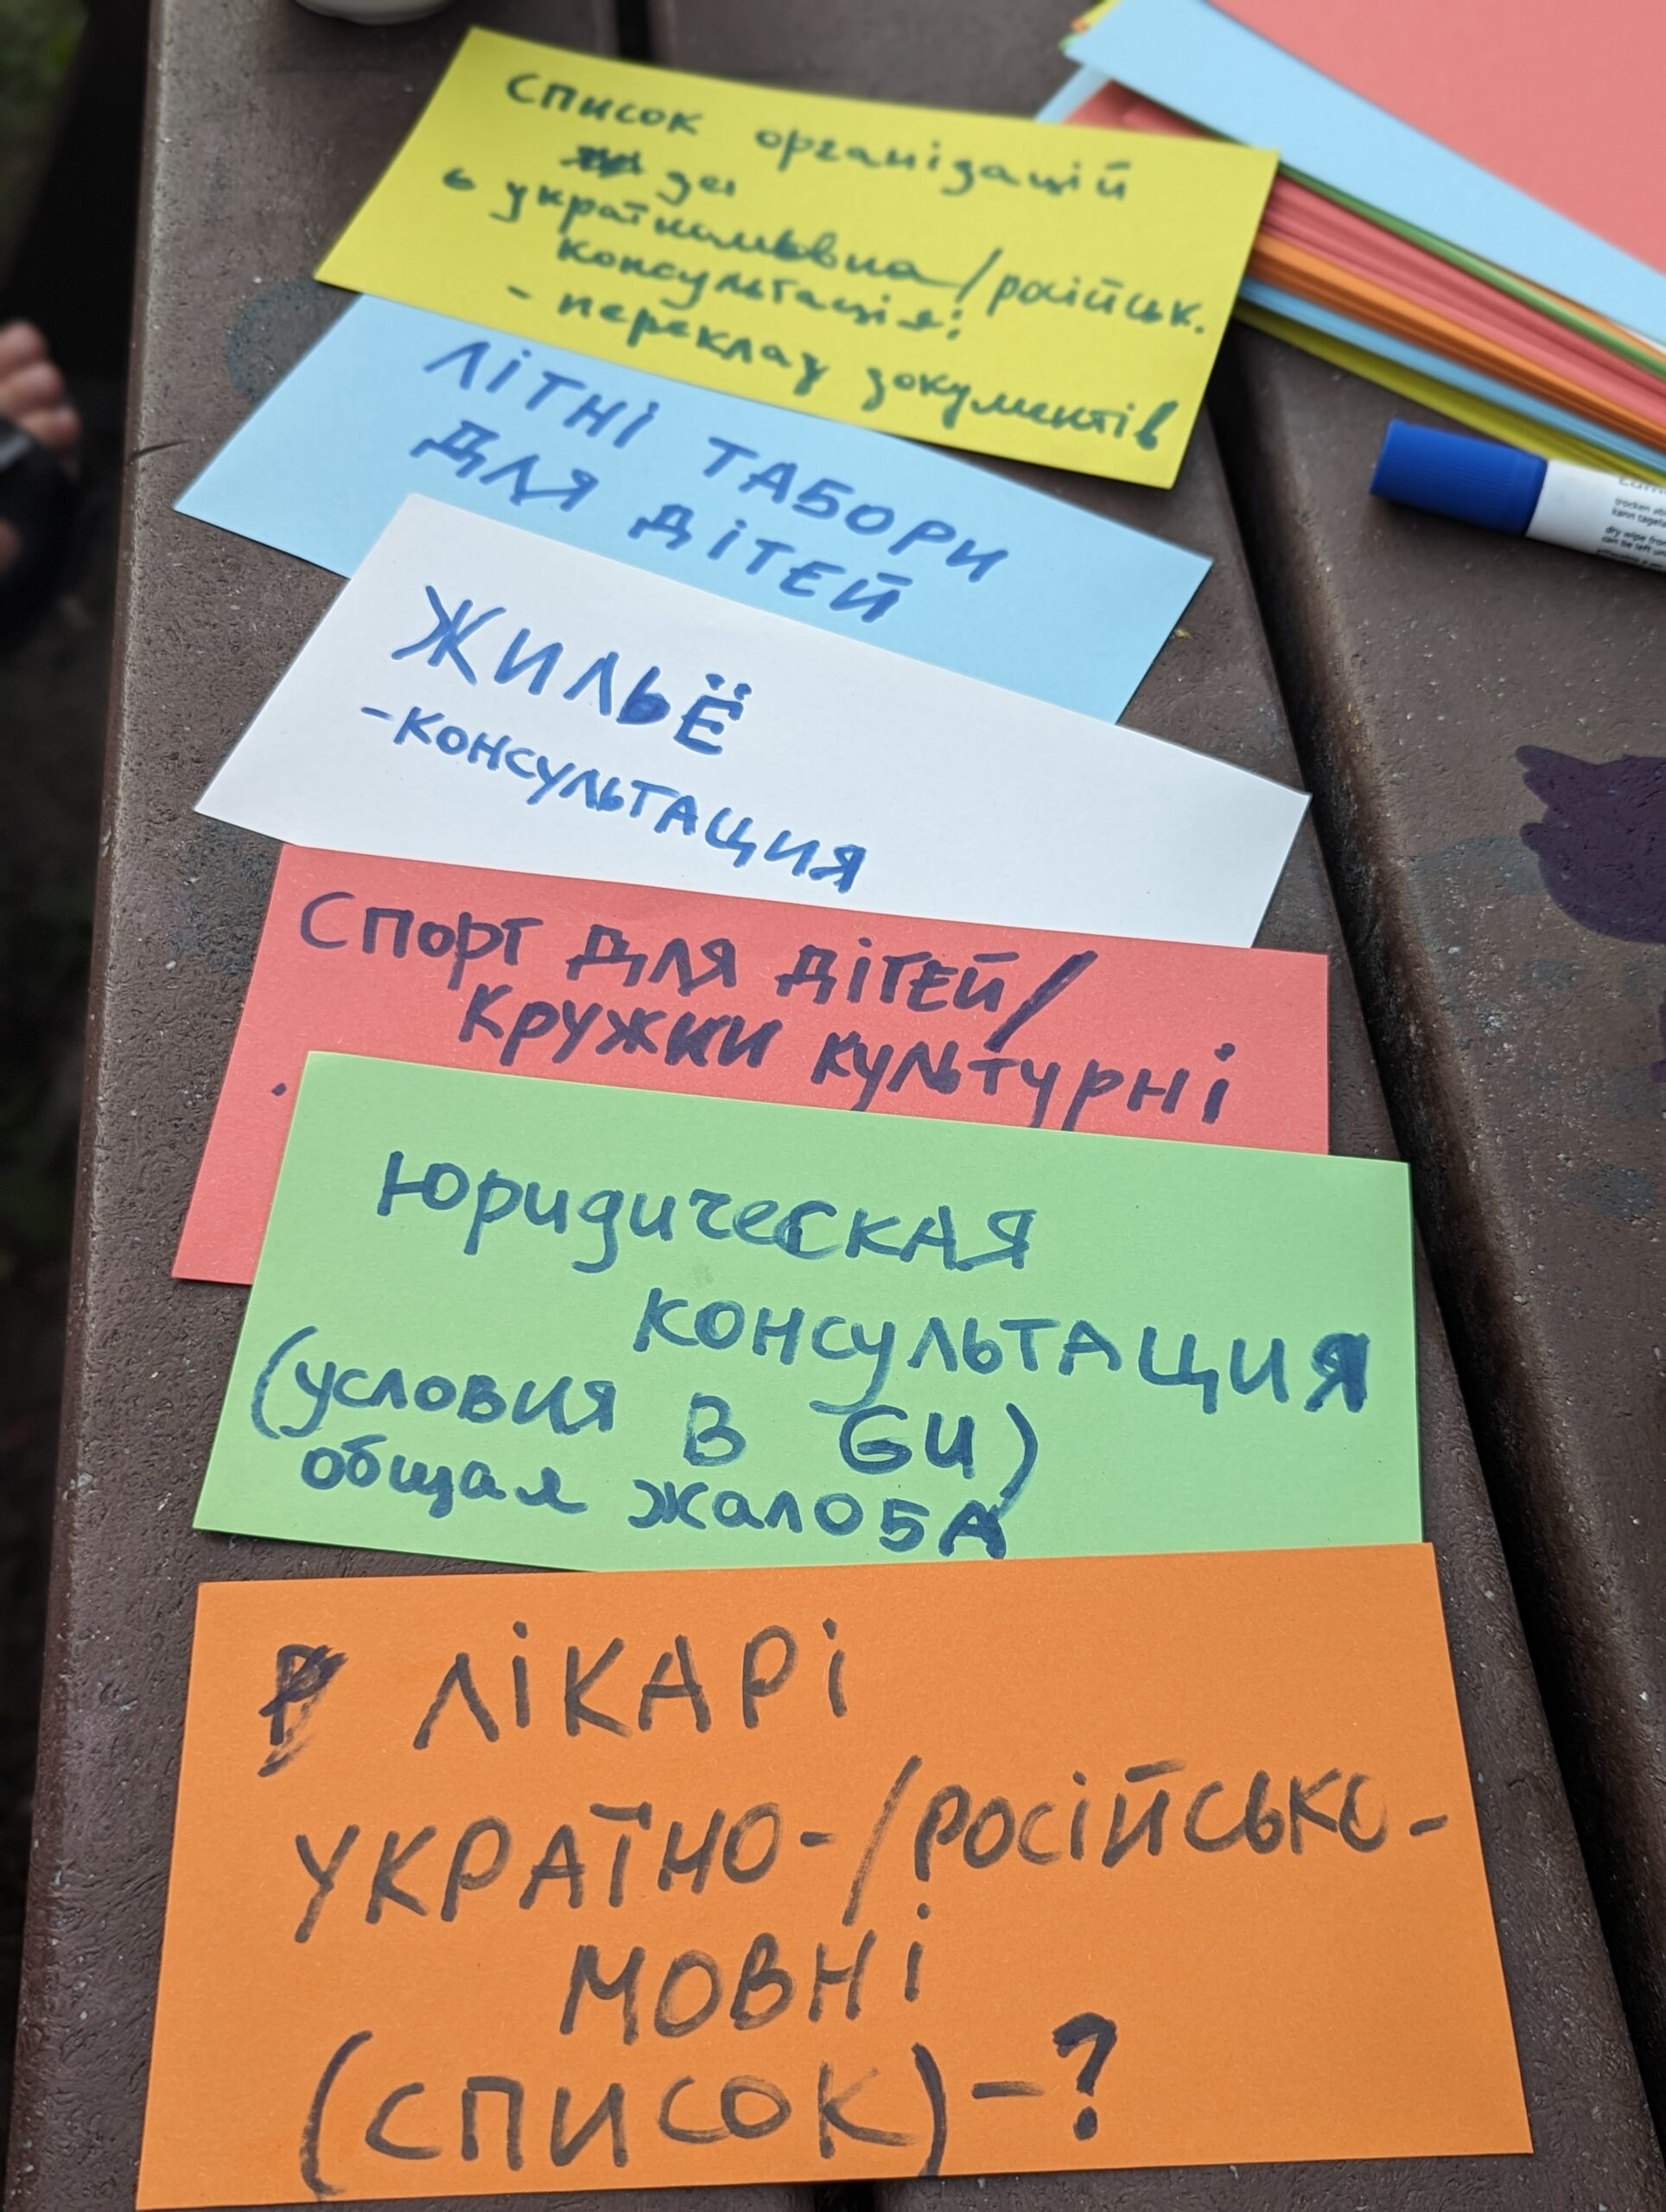 Список організацій
де
є україномовна/російськ.
консультація:
- переклад документів
ЛІТНІ ТАБОРИ
ДЛЯ ДІТЕЙ
ЖИЛЬЁ
-КОНСУЛЬТАЦИЯ
СПОРТ ДЛЯ ДІТЕЙ/
КРУЖКИ КУЛЬТУРНІ
Юридическая
КОНСУЛЬТАЦИЯ
(условия в GU)
общая жалоба
ЛІКАРІ
УКРАЇНО-/РОСІЙСЬКО-
МОВНІ
(СПИСОК)-?
trocken ab
dry wipe from
can be left un